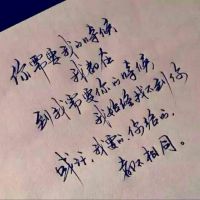 你需要我的时候
我都在
到我需要你的时候
我始终找不到你
或许，我要的，你给的，
都不相同。